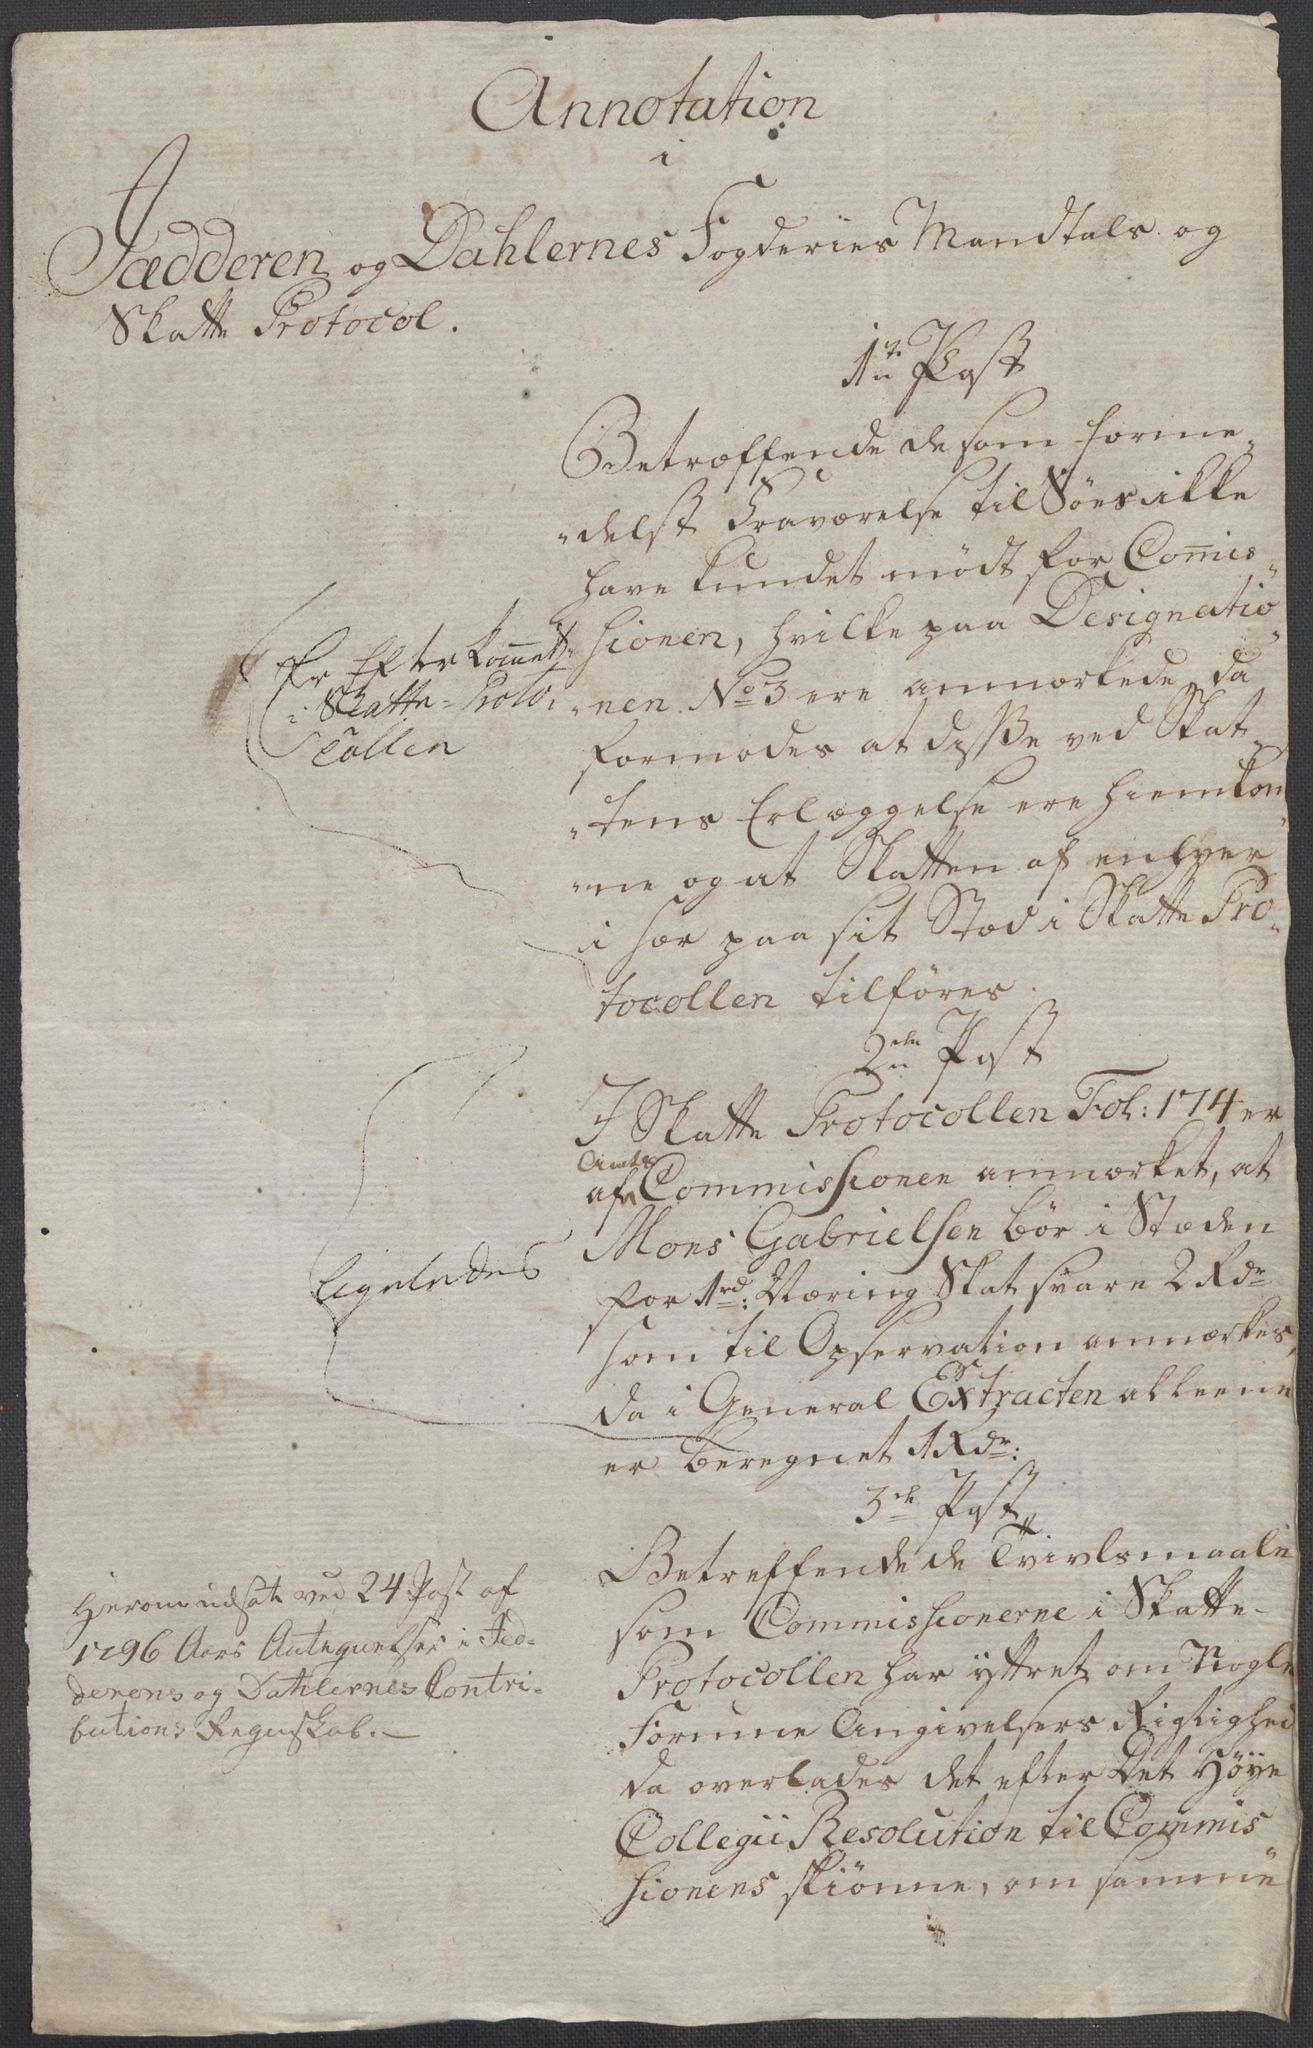 Annotation
i
Jædderen og Dahlernes Fogderies Mandtals og
Skatte Protocol.
1te Post
Betræffende de som forme„
„delst Fraværelse til Søes ikke
have kundet mødt for Com̅is„
sionen, hvilke paa Designatio„
„nen No 3 ere anmærkede, da
formodes at disse ved Skat„
„tens Erlæggelse ere hiemkom„
„ne og at Skatten af enhver
i sær paa sit Stæd i Skatte Pro„
tocollen tilføres.
Er Efterkommet
i Skatte-Proto„
collen
2den Post
I Skatte Protocollen Fol: 174 er
Amts
af Commissionen anmærket, at
Mons Gabrielsen bør i Stæden
for 1rd: Næring Skat svare 2 Rdr
som til Opservation anmærkes,
da i General Extracten alleene
er beregnet 1 Rdr:
Ligeledes
3de Post
Betreffende de Tvivlsmaale
som Commissionerne i Skatte-
Protocollen har yttret om Nogle
Formue Angivelsers Rigtighed
da overlades det efter Det Høye
Collegii Resolution til Commis„
sionens skiønne, om samme
Herom udsat ved 24 Post af
1796 Aars Antegnelser i Jed-
derens og Dahlernes Contri-
butions Regnskab. —